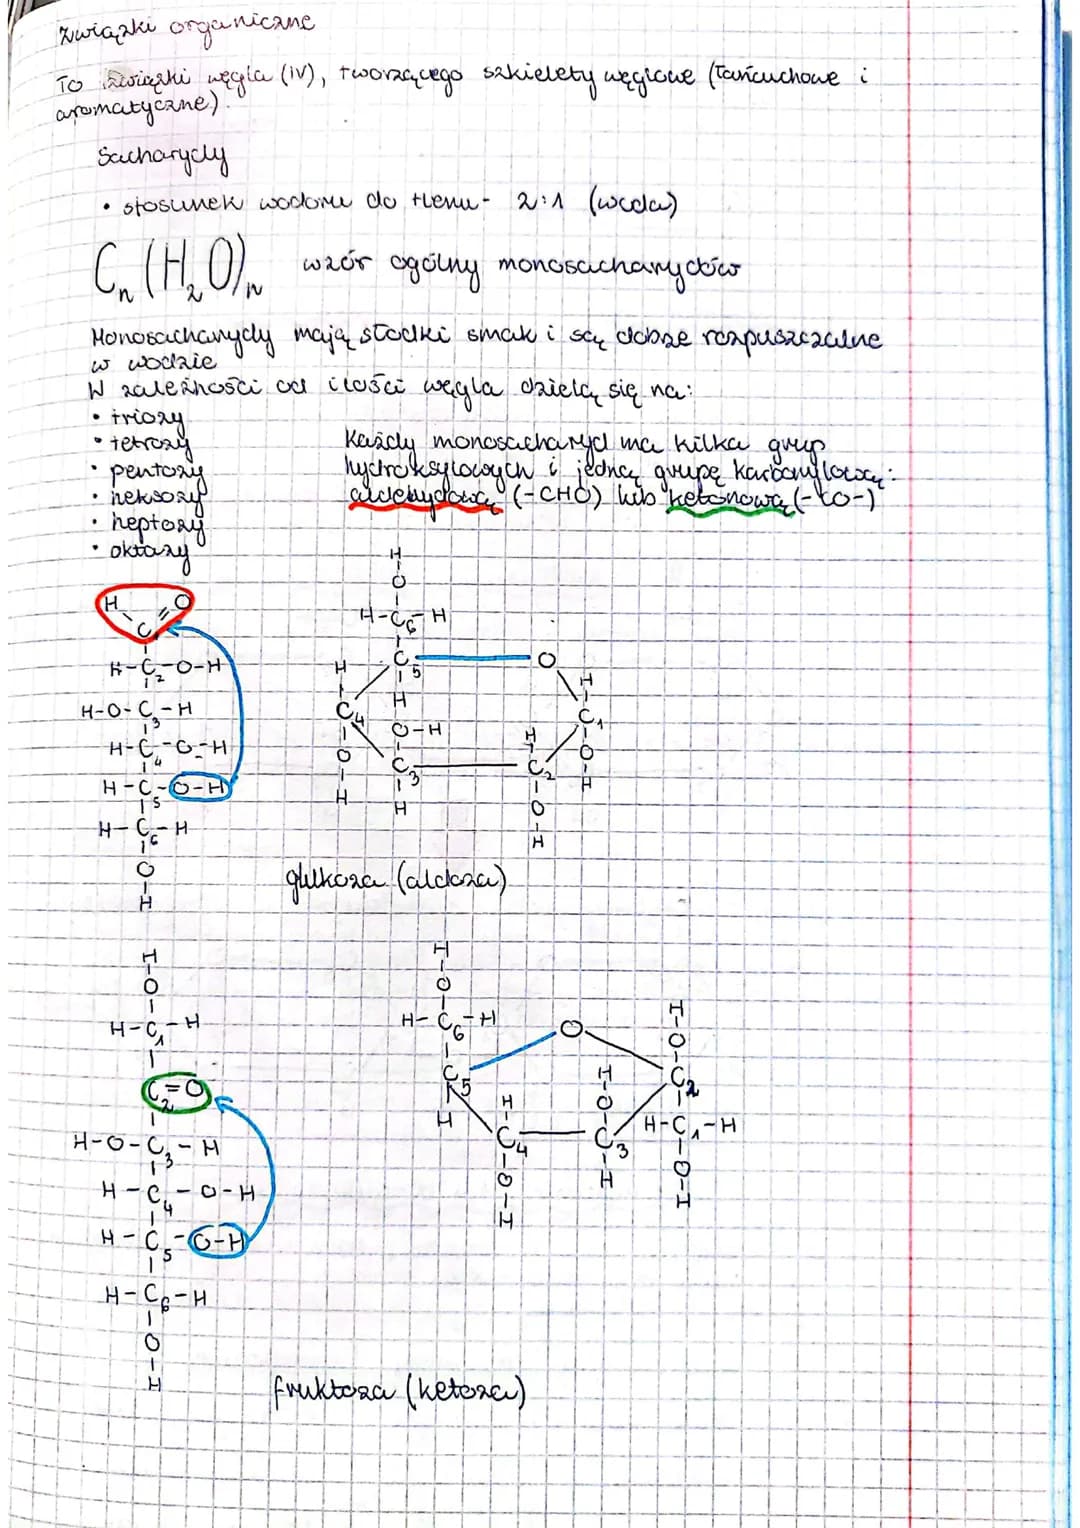 Związki organiczne
To związki węgla (IV), tworzącego szkielety węglowe (łańcuchowe i
aromatyczne).
Sacharydy
• stosunek wodoru do tlenu - 2:1 (woda)
Cn(H2O)n wzór ogólny monosacharydów
Monosacharydy mają słodki smak i są dobrze rozpuszczalne
w wodzie
W zależności od ilości węgla dzielą się na:
• triozy
• tetrozy
• pentozy
• heksozy
• heptozy
• oktazy
Każdy monosacharyd ma kilka grup
hydroksylowych i jedną grupę karbonylową:
aldehydową (-CHO) lub ketonową (-CO-)
H O
C1
H-C2-O-H
H-O-C3-H
H-C4-O-H
H-C5-O-H
H-C6-H
O
H
H
O
H-C6-H
H C5 O
H H
C4 O-H H C1
O C3 C2 O
H H O H
H
glukoza (aldoza)
H
O
H-C1-H
C2=O
H-O-C3-H
H-C4-O-H
H-C5-O-H
H-C6-H
O
H
H
O
H-C6-H O H
O
C5 H C2
H H O H-C1-H
C4 C3 O
O H H
H
fruktoza (ketoza)